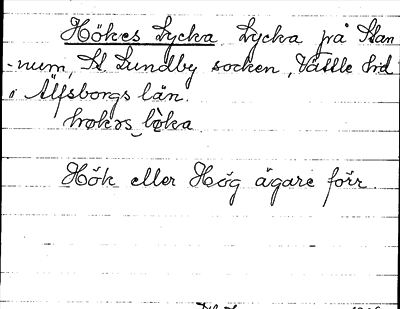 Hökes Lycka Lycka på Stan
-num, St Lundby socken, Vättle hd
i Älfsborgs län.
hökəs lỳka
Hök eller Hög ägare förr.